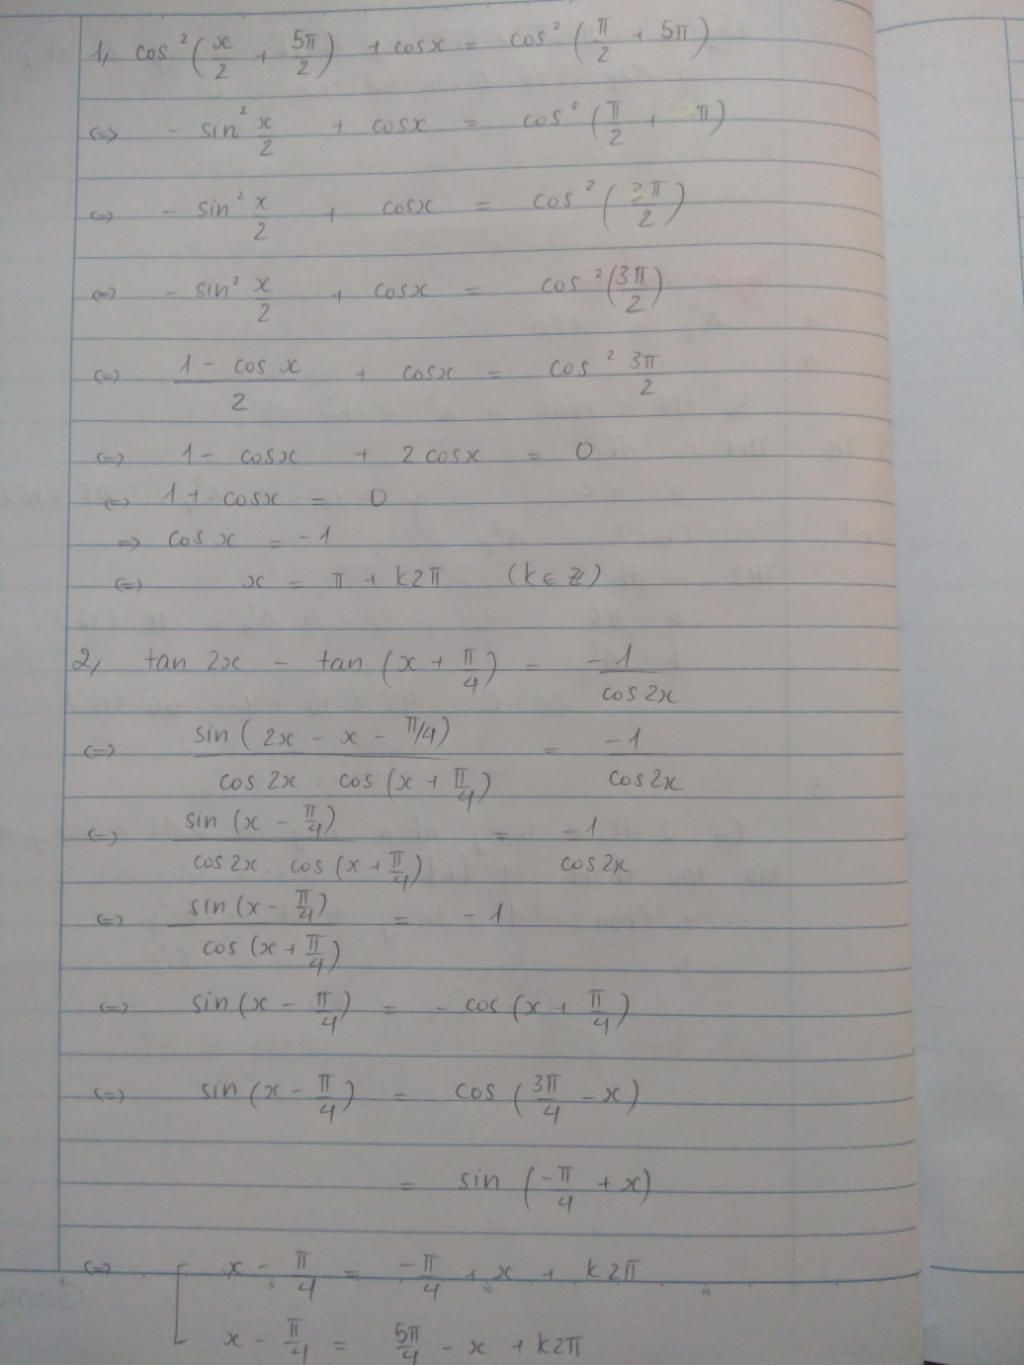 1, cos²(x/2 + 5π/2) + cosx = cos²(π/2 + 5π)
⇔ - sin² x/2 + cosx = cos²(π/2 + π)
⇔ - sin² x/2 + cosx = cos²(3π/2)
⇔ - sin² x/2 + cosx = cos²(3π/2)
⇔ (1 - cos x)/2 + cosx = cos² 3π/2
⇔ 1 - cosx + 2cosx = 0
⇔ 1 + cosx = 0
⇒ cos x = -1
⇔ x = π + k2π (k ∈ Z)
2, tan 2x - tan (x + π/4) = -1/cos2x
⇔ sin(2x - x - π/4)/(cos2x . cos(x + π/4)) = -1/cos2x
⇔ sin(x - π/4)/(cos2x. cos(x + π/4)) = -1/cos2x
⇔ sin(x - π/4)/cos(x + π/4) = -1
⇔ sin(x - π/4) = - cos(x + π/4)
⇔ sin(x - π/4) = cos(3π/4 - x)
= sin(-π/4 + x)
⇔ [ x - π/4 = -π/4 + x + k2π
x - π/4 = 5π/4 - x + k2π